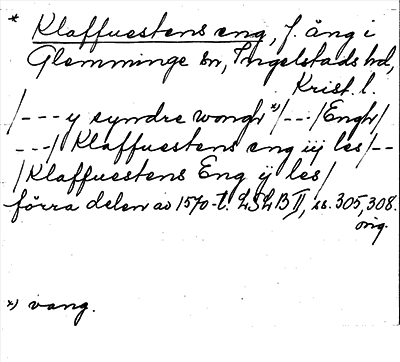 * Klaffuestens eng, f. äng i
Glemminge sn, Ingelstads hd,
Krist. l.
/--- y syndre wongh *) /---/ Engh/
---/ Klaffuestens eng iij les /--
/ Klaffuestens Eng ij les /
förra delen av 1570-t. LSLB II, ss. 305, 308.
orig.
*) vang.